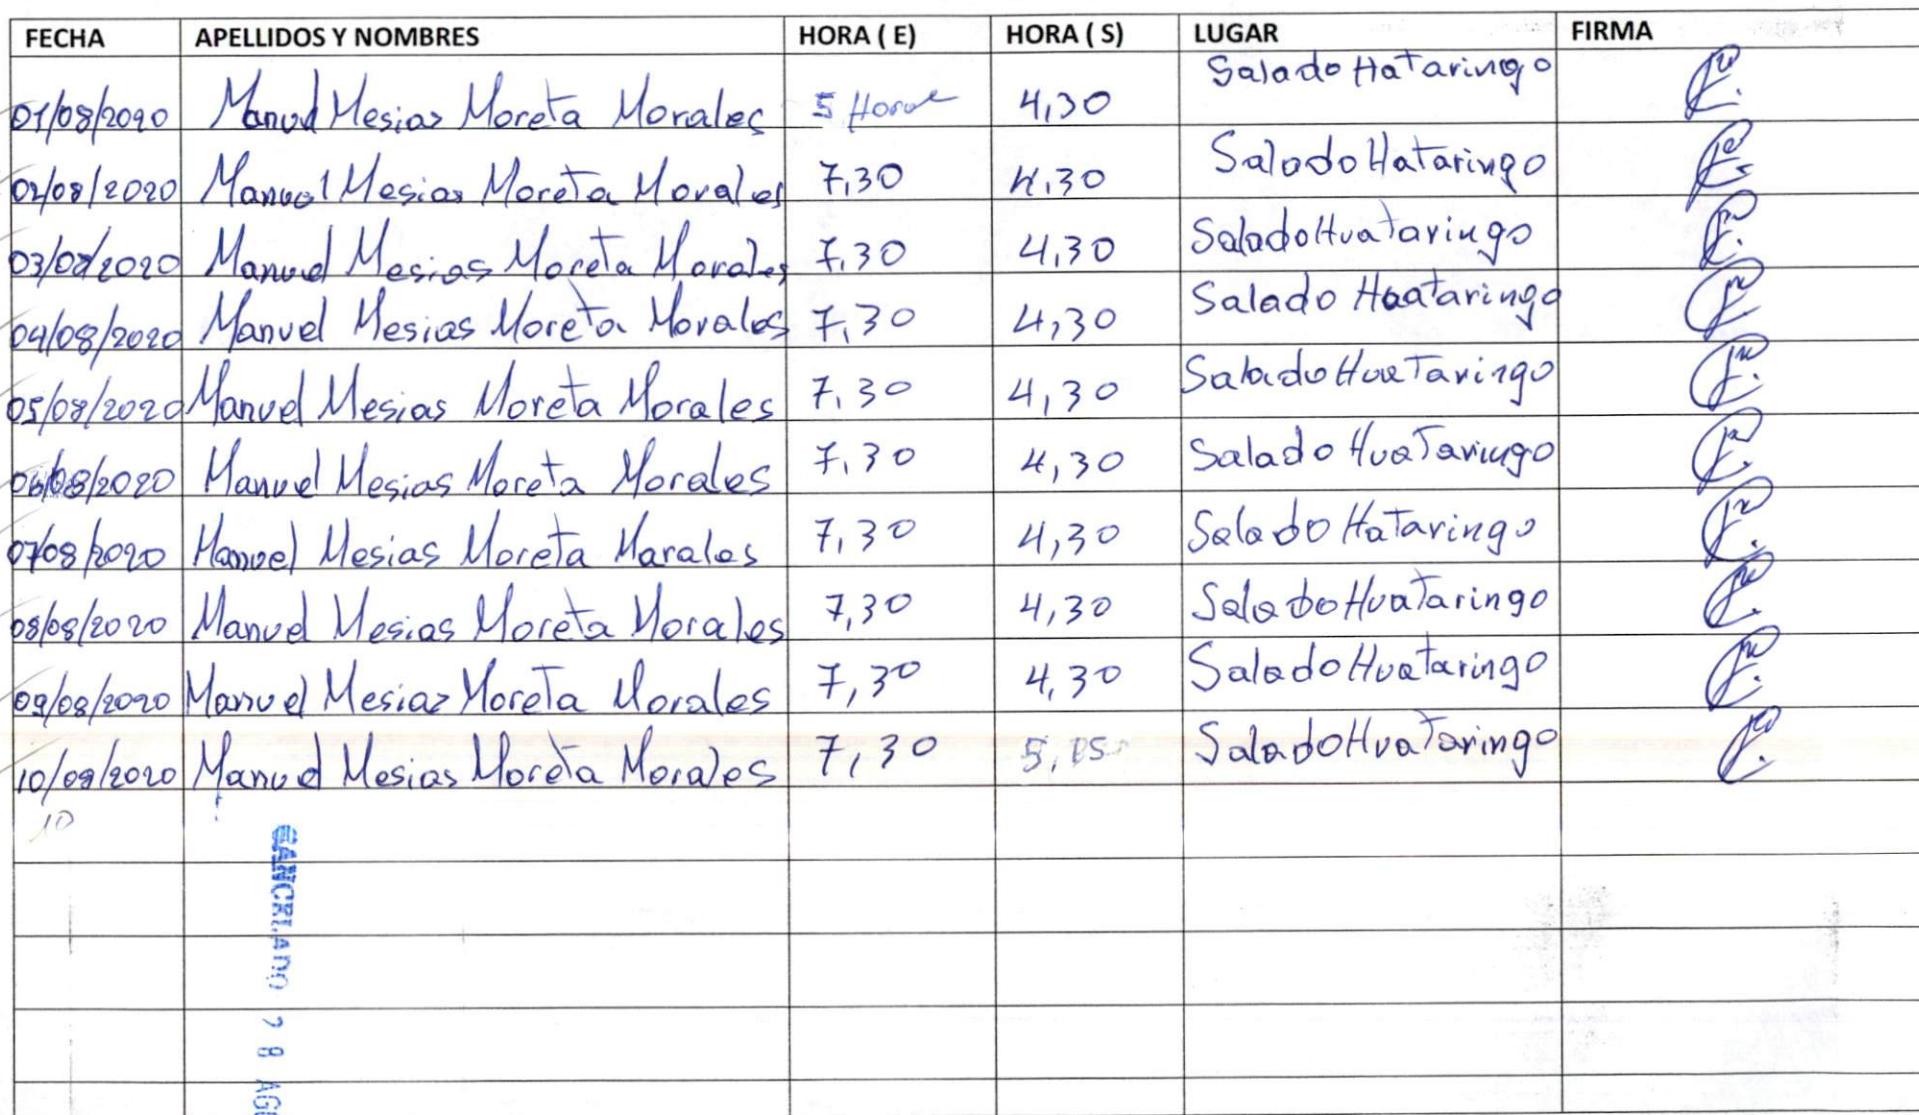 FECHA APELLIDOS Y NOMBRES HORA ( E) HORA ( S) LUGAR FIRMA
01/08/2020 Manuel Mesias Moreta Morales 5 Horas 4,30 Salado Hataringo
02/08/2020 Manuel Mesias Moreta Morales 7,30 4,30 Salado Hataringo
03/08/2020 Manuel Mesias Moreta Morales 7,30 4,30 Salado Huataringo
04/08/2020 Manuel Mesias Moreta Morales 7,30 4,30 Salado Huataringo
05/08/2020 Manuel Mesias Moreta Morales 7,30 4,30 Salado Huataringo
06/08/2020 Manuel Mesias Moreta Morales 7,30 4,30 Salado Huataringo
07/08/2020 Manuel Mesias Moreta Marales 7,30 4,30 Salado Hataringo
08/08/2020 Manuel Mesias Moreta Morales 7,30 4,30 Salado Huataringo
09/08/2020 Manuel Mesias Moreta Morales 7,30 4,30 Salado Huataringo
10/08/2020 Manuel Mesias Moreta Morales 7,30 Salado Huataringo
10
CANCELADO 28 AGO